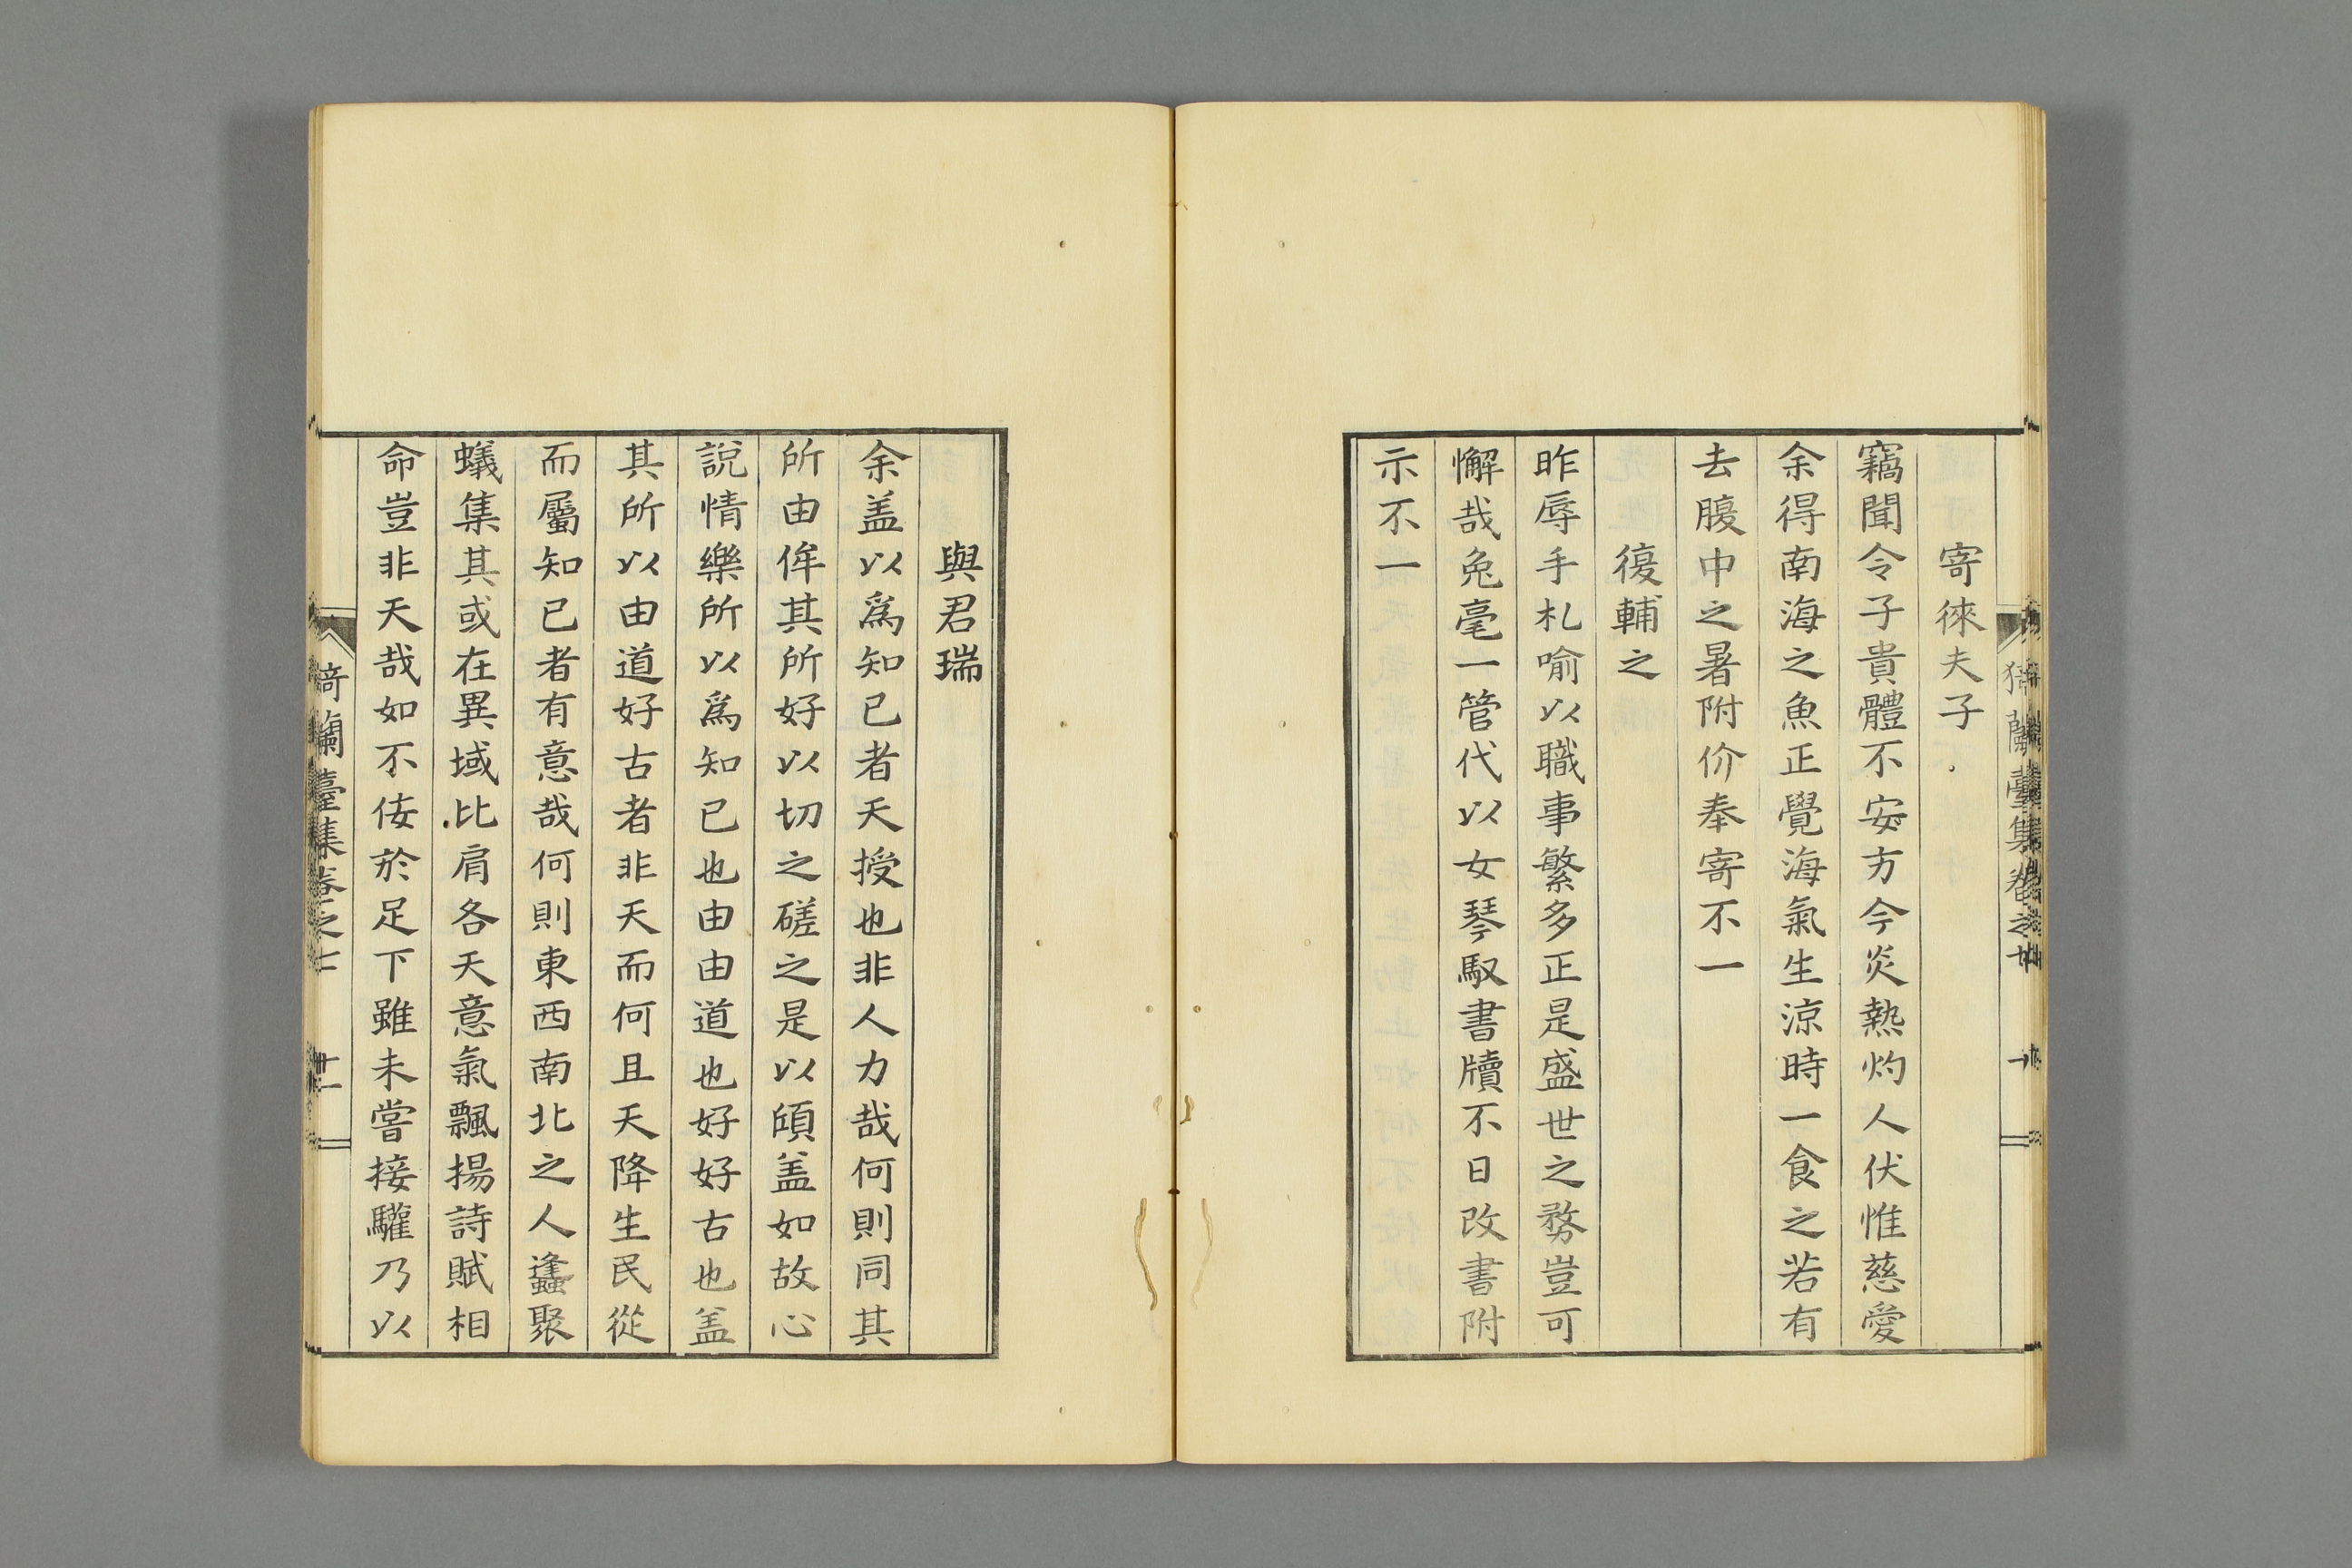 寄徠夫子
竊聞令子貴體不安方今炎熱灼人伏惟慈愛
余得南海之魚正覺海氣生涼時一食之若有
去腹中之暑附价奉寄不一
復輔之
昨辱手札喻以職事繁多正是盛世之務豈可
懈哉兔毫一管代以女琴馭書牘不日改書附
示不一
與君瑞
余盖以爲知已者天授也非人力哉何則同其
所由侔其所好以切之磋之是以頃盖如故心
說情樂所以爲知已也由由道也好好古也盖
其所以由道好古者非天而何且天降生民從
而屬知已者有意哉何則東西南北之人蠭聚
蟻集其或在異域比肩各天意氣飄揚詩賦相
命豈非天哉如不佞於足下雖未嘗接驩乃以
猗蘭臺集卷之七
十一